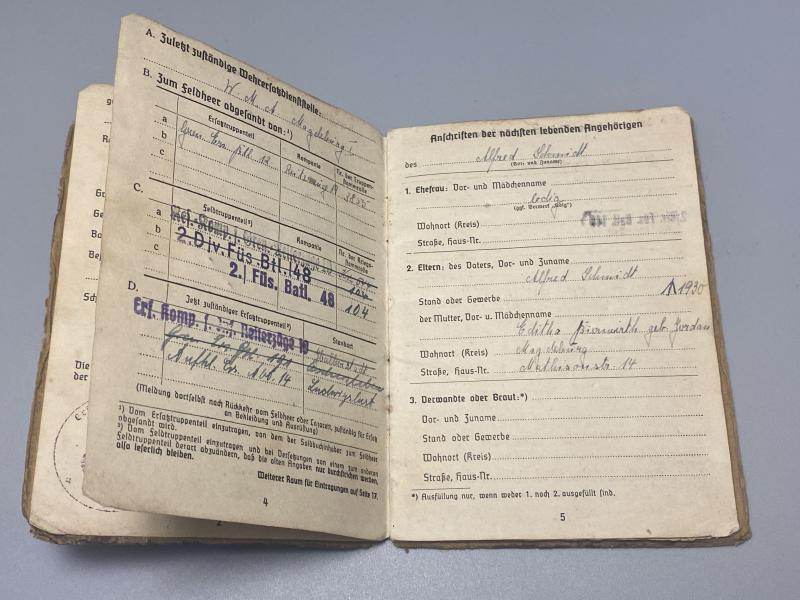 A. Zuletzt zuständige Wehrersatzdienststelle:
W. M. A. Magdeburg I
B. Zum Feldheer abgesandt von:¹)
Ersatztruppenteil Kompanie Nr. der Truppen-stammrolle
a Ers. 12
b
c
C. Feldtruppenteil²) Kompanie Nr. der Kriegs-stammrolle
a
b 2. Div. Füs. Btl. 148
c 2. / Füs. Batl. 48 104
D. Jetzt zuständiger Ersatztruppenteil²) Standort
Ers. Komp. f. Inf. Reiterzüge 19
Aufkl. Ers. Abt. 14 Ludwigslust
(Meldung dortselbst nach Rückkehr vom Feldheer oder Lazarett, zuständig für Ersatz
an Bekleidung und Ausrüstung)
¹) Vom Ersatztruppenteil einzutragen, von dem der Soldbuchinhaber zum Feldheer
abgesandt wird.
²) Vom Feldtruppenteil einzutragen und bei Versetzungen von einem zum anderen
Feldtruppenteil derart abzuändern, daß die alten Angaben nur durchstrichen werden,
also leserlich bleiben.
Weiterer Raum für Eintragungen auf Seite 17.
4
Anschriften der nächsten lebenden Angehörigen
des Alfred Schmidt
(Vor- und Zuname)
1. Ehefrau: Vor- und Mädchenname
ledig
(ggf. Vermerk „ledig“)
Wohnort (Kreis)
Straße, Haus-Nr.
2. Eltern: des Vaters, Vor- und Zuname
Alfred Schmidt
Stand oder Gewerbe 1930
der Mutter, Vor- u. Mädchenname
Editha Bierwirth geb. Jordan
Wohnort (Kreis) Magdeburg
Straße, Haus-Nr. 14
3. Verwandte oder Braut:*)
Vor- und Zuname
Stand oder Gewerbe
Wohnort (Kreis)
Straße, Haus-Nr.
*) Ausfüllung nur, wenn weder 1. noch 2. ausgefüllt sind.
5